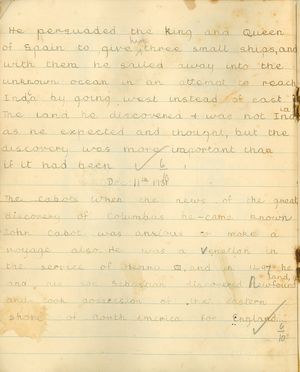 He persuaded the King and Queen
of Spain to give him three small ships, and
with them he sailed away into the
unknown ocean in an attempt to reach
India by going west instead of east.
The land he discovered was not India
as he expected and thought, but the
discovery was more important than
if it had been 6/10
Dec 11th
The Cabots When the news of the great
discovery of Columbus became known
John Cabot was anxious to make a
voyage also. He was a Venetian in
the service of Henry and in he
and his son Sebastian discovered Newfoundland,
and took possession of the eastern
shore of North America for England.
6/10